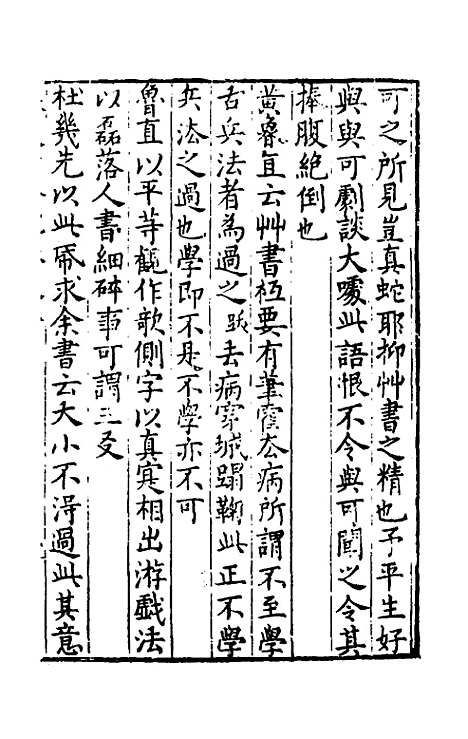 可之所見豈真蛇耶抑艸書之精也予平生好
與與可劇談大噱此語恨不令與可聞之令其
捧腹絶倒也
黃魯直云艸書秪要有筆霍去病所謂不至學
古兵法者為過之跋去病穿城蹋鞠此正不學
兵法之過也學即不是不學亦不可
魯直以平等觀作欹側字以真寔相出游戲法
以磊落人書細碎事可謂三反
杜幾先以此帋求余書云大小不得過此其意